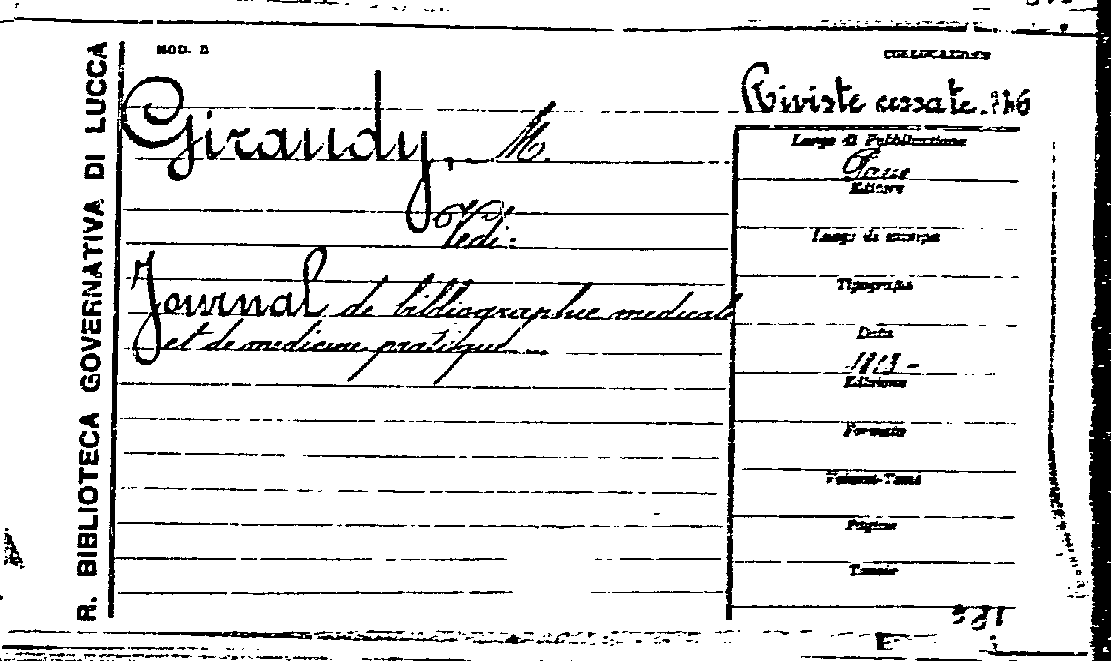 R. BIBLIOTECA GOVERNATIVA DI LUCCA
MOD. D
COLLOCAZIONE
Riviste cessate
Giraudy, M.
Vedi:
Journal de bibliographie medicale
et de medicine pratique
Luogo di Pubblicazione
Editore
Luogo di stampa
Tipografia
Data
Edizione
Formato
Volumi-Tomi
Pagine
Tavole